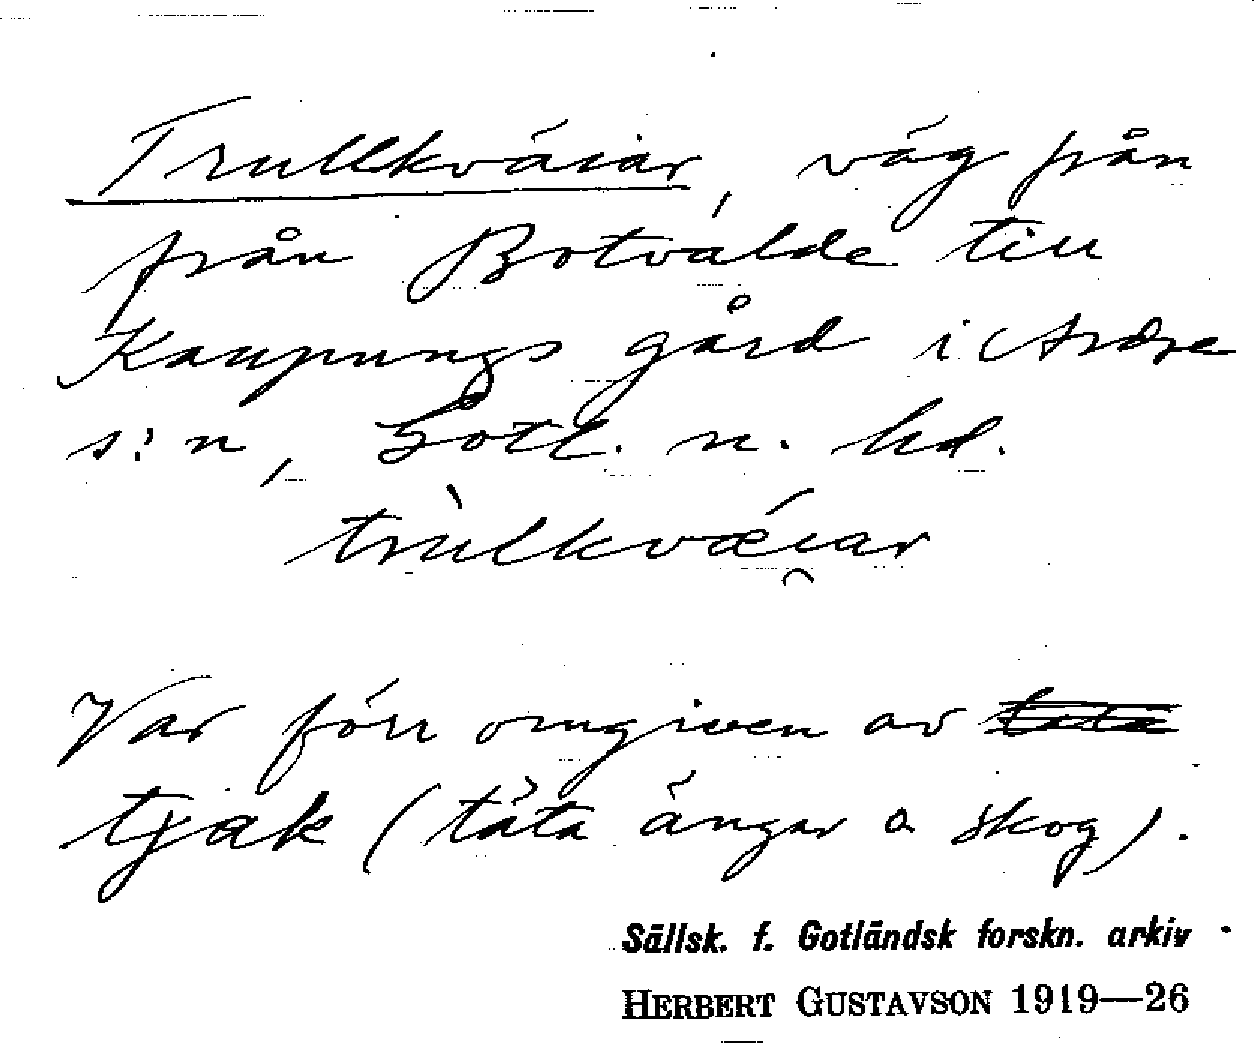 Trullkväiar, väg från
från Botvalde till
Kaupungs gård i Ardre
s:n, Gotl. n. hd.
trùlkvǽi̯ar
Var förr omgiven av
tjak (täta ängar o skog).
Sällsk. f. Gotländsk forskn. arkiv
HERBERT GUSTAVSON 1919—26